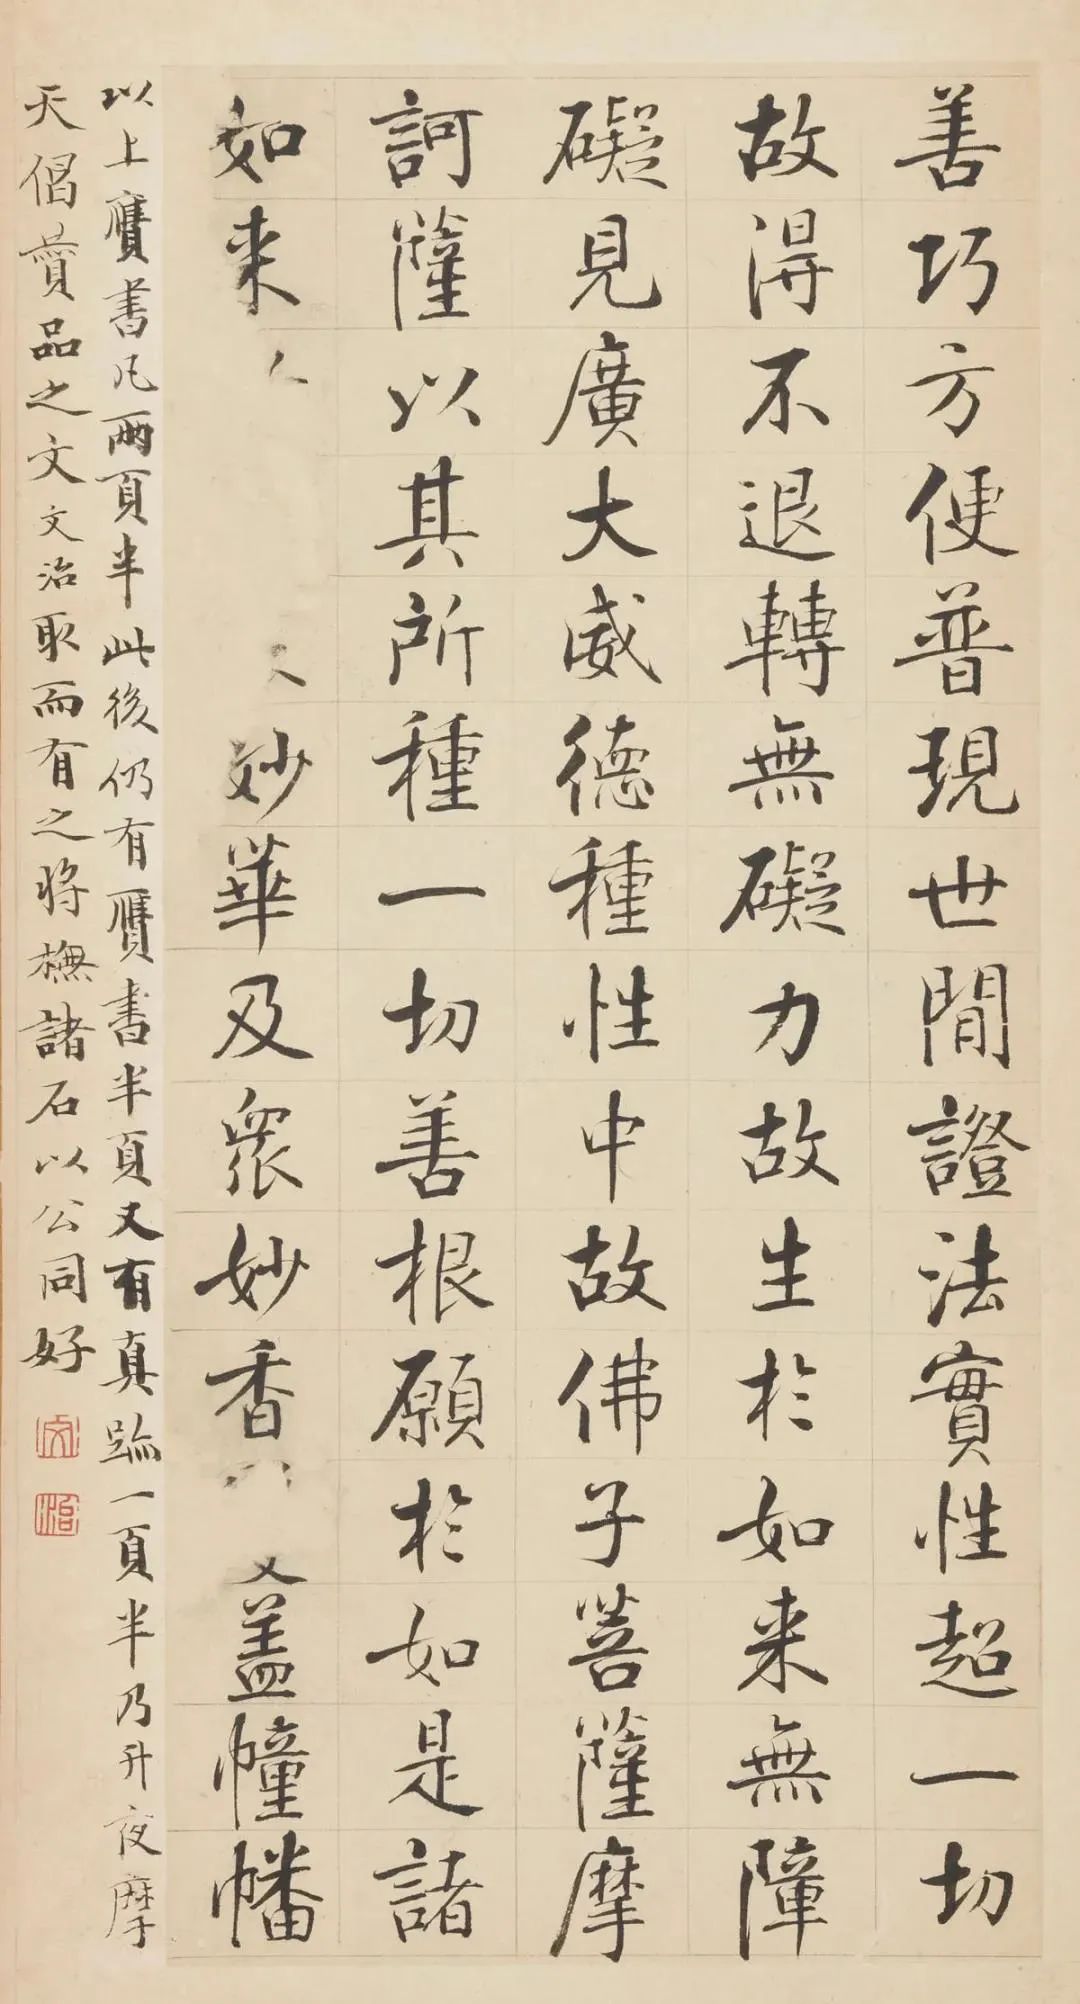 善巧方便普現世間證法實性超一切
故得不退轉無礙力故生於如来無障
礙見廣大威德種性中故佛子菩薩摩
訶薩以其所種一切善根願於如是諸
如来
妙華及眾妙香
盖幢幡
以上贋書凡兩頁半此後仍有贋書半頁又有真跡一頁半乃升夜摩
天偈贊品之文文治取而有之將橅諸石以公同好
文
治